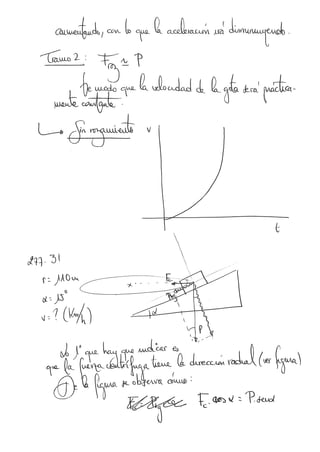 aumentando, con lo que la aceleración irá disminuyendo.
Tramo 2: Froz ≃ P
De modo que la velocidad de la gota será práctica-
mente constante.
Sin rozamiento v
t
277. 31
r = 110 m
α = 15°
v = ? (Km/h)
x
α
P
lo 1º que hay que indicar es
que la fuerza centrífuga tiene la dirección radial (ver figura)
la figura se observa cómo:
Fc · cos α = P sen α